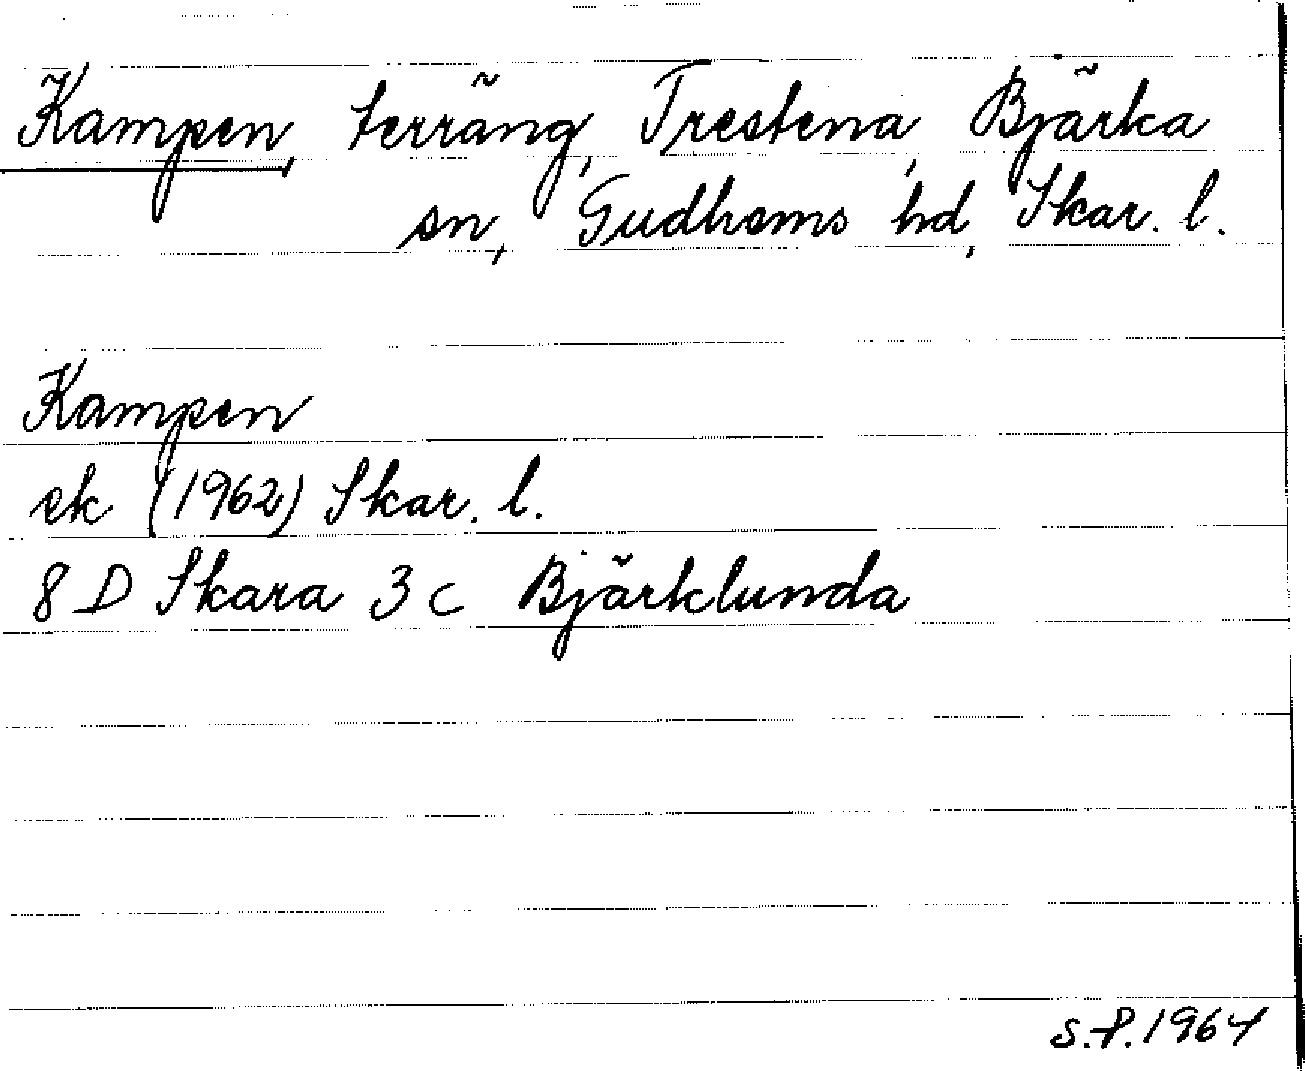 Kampen, terräng, Trestena, Bjärka
sn, Gudhems hd, Skar. l.
Kampen
ek (1962) Skar. l.
8 D Skara 3 c Bjärklunda
S.P. 1964